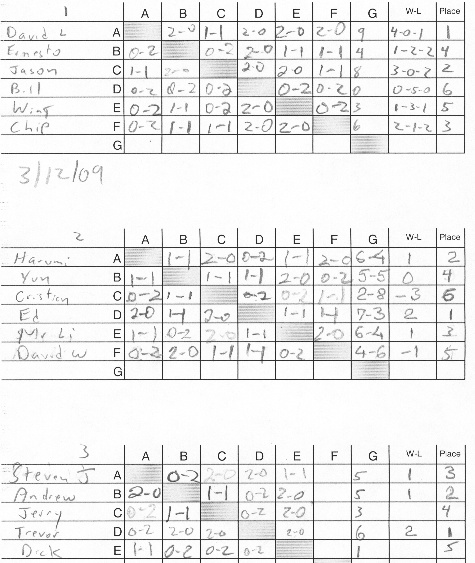 1 A B C D E F G W-L Place
David L A 2-0 1-1 2-0 2-0 2-0 9 4-0-1 1
Ernesto B 0-2 0-2 2-0 1-1 1-1 4 1-2-2 4
Jason C 1-1 2-0 2-0 2-0 1-1 8 3-0-2 2
Bill D 0-2 0-2 0-2 0-2 0-2 0 0-5-0 6
Wing E 0-2 1-1 0-2 2-0 0-2 3 1-3-1 5
Chip F 0-2 1-1 1-1 2-0 2-0 6 2-1-2 3
G
3/12/09
2 A B C D E F G W-L Place
Harumi A 1-1 2-0 0-2 1-1 2-0 6-4 1 2
Yun B 1-1 1-1 1-1 2-0 0-2 5-5 0 4
Cristian C 0-2 1-1 0-2 0-2 1-1 2-8 -3 6
Ed D 2-0 1-1 2-0 1-1 1-1 7-3 2 1
Mr Li E 1-1 0-2 2-0 1-1 2-0 6-4 1 3
David W F 0-2 2-0 1-1 1-1 0-2 4-6 -1 5
G
3 A B C D E F G W-L Place
Steven J A 0-2 2-0 2-0 1-1 5 1 3
Andrew B 2-0 1-1 0-2 2-0 5 1 2
Jerry C 0-2 1-1 0-2 2-0 3 4
Trevor D 0-2 2-0 2-0 2-0 6 2 1
Dick E 1-1 0-2 0-2 0-2 1 5